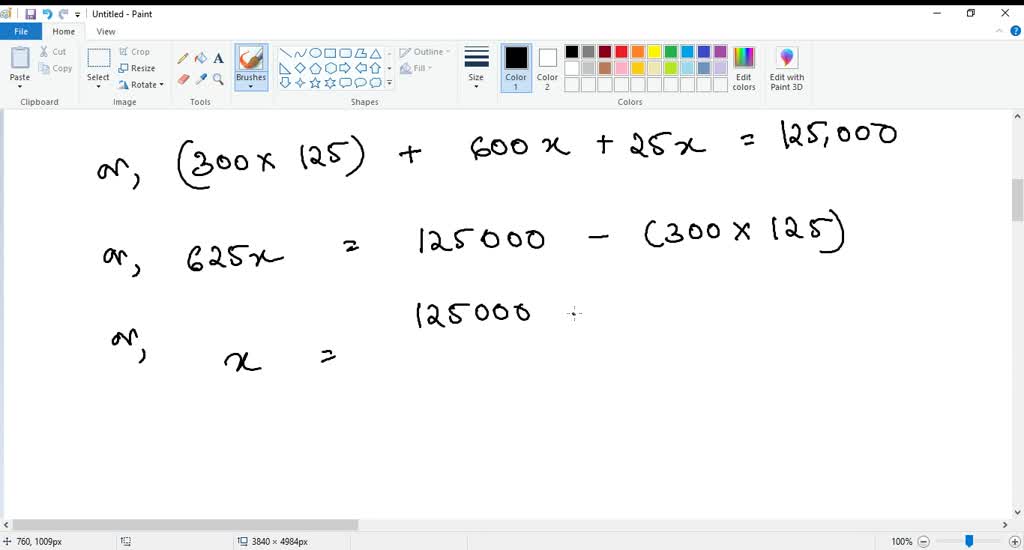 Untitled - Paint
File Home View
Paste Cut Copy Clipboard
Select Crop Resize Rotate Image
Tools
Brushes
Shapes Outline Fill
Size
Color 1 Color 2 Colors
Edit colors
Edit with Paint 3D
or, (300 × 125) + 600x + 25x = 125,000
or, 625x = 125000 - (300 × 125)
125000
or, x =
760, 1009px 3840 × 4984px 100%